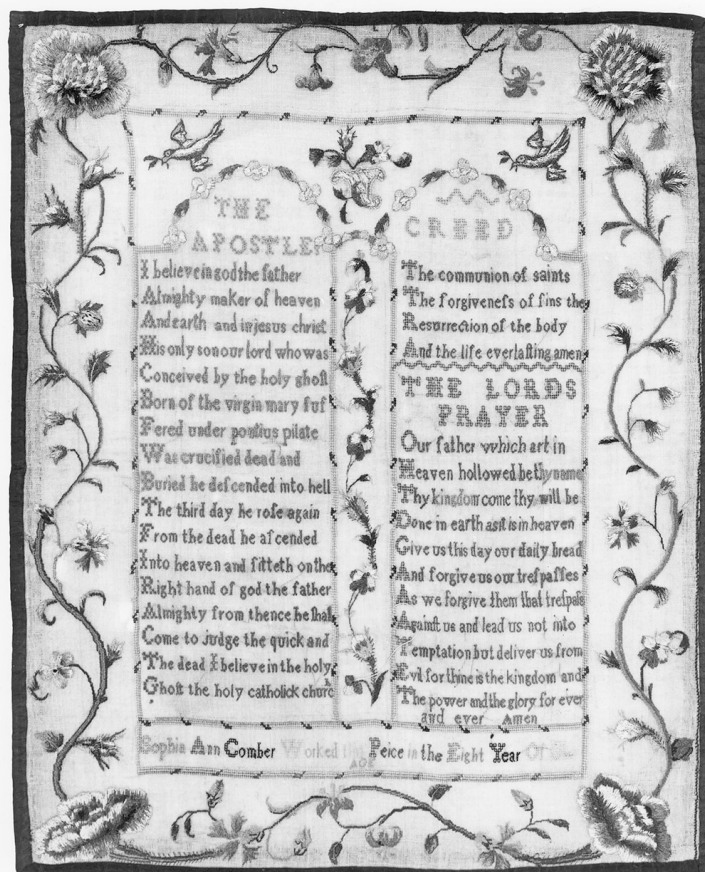 THE
APOSTLES
I believe in god the father
Almighty maker of heaven
And earth and in jesus christ
His only son our lord who was
Conceived by the holy ghoſt
Born of the virgin mary ſuf
Fered under pontius pilate
Was crucified dead and
Buried he deſcended into hell
The third day he roſe again
From the dead he aſcended
Into heaven and ſitteth on the
Right hand of god the father
Almighty from thence he ſhall
Come to judge the quick and
The dead I believe in the holy
Ghoſt the holy catholick church
CREED
The communion of saints
The forgiveneſs of ſins the
Resurrection of the body
And the life everlaſting amen
THE LORDS
PRAYER
Our father which art in
Heaven hollowed be thy name
Thy kingdom come thy will be
Done in earth as it is in heaven
Give us this day our daily bread
And forgive us our treſpaſſes
As we forgive them that treſpaſs
Againſt us and lead us not into
Temptation but deliver us from
Evil for thine is the kingdom and
The power and the glory for ever
and ever Amen
Sophia Ann Comber Worked this Peice in the Eight Year Of
AGE